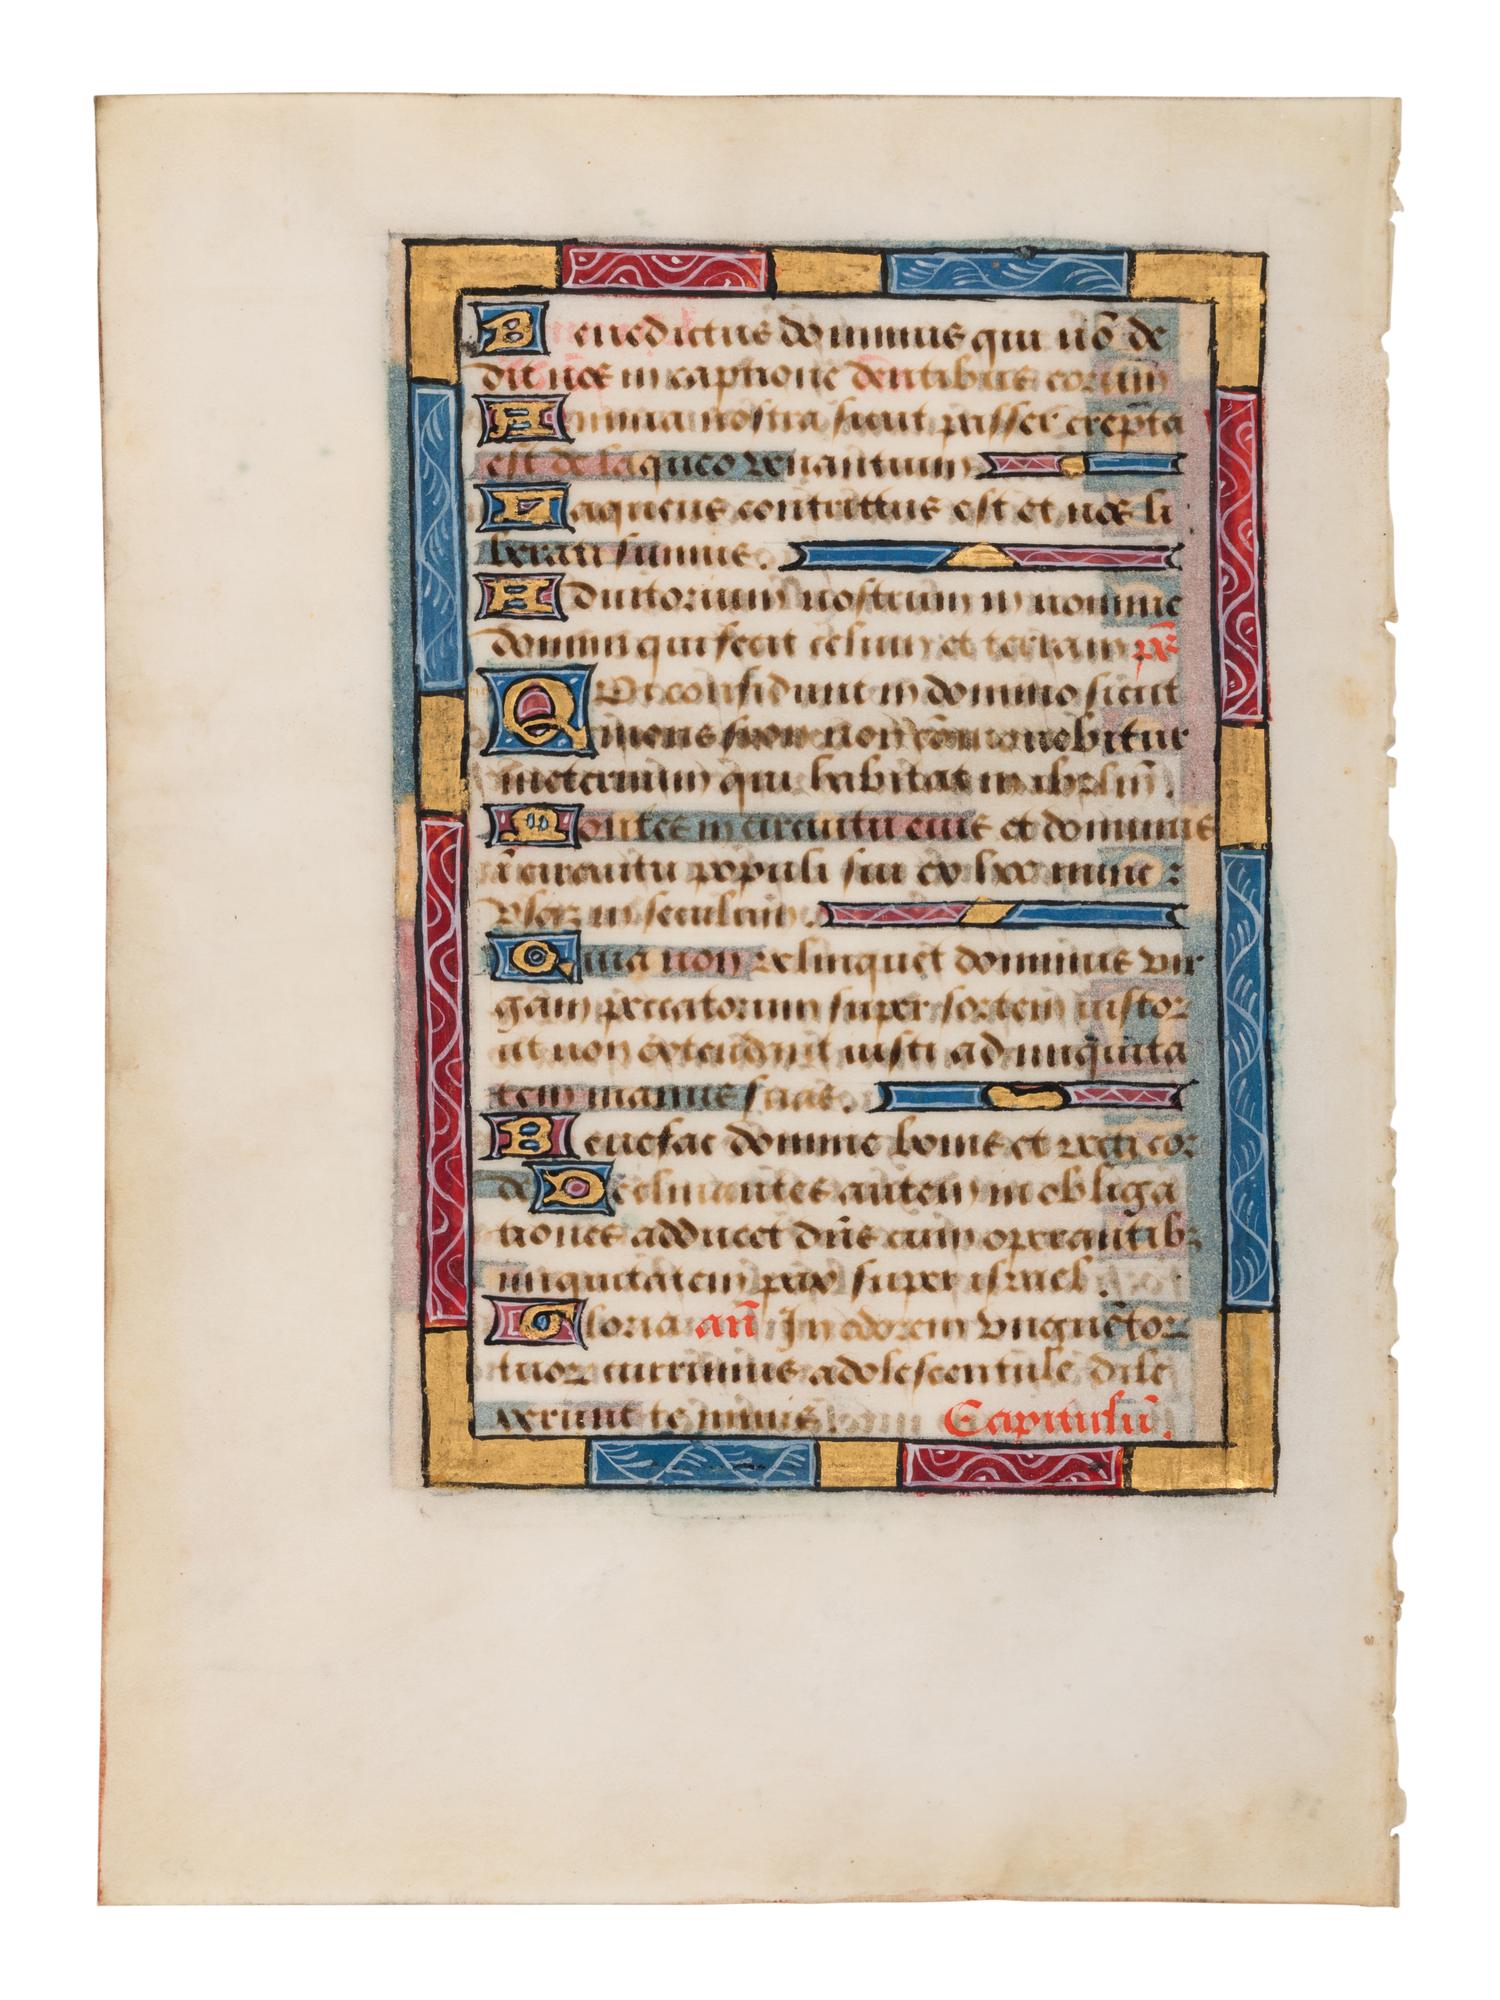 Benedictus dominus qui nō de
dit nos in captione dentibus eorum
Anima nostra sicut passer erepta
est de laqueo venantium
Laqueus contrittus est et nos li
berati sumus.
Adiutorium nostrum in nomine
domini qui fecit celum et terram pš
Qui confidunt in domino sicut
mons syon non cōmovebitur
in eternum qui habitat in ihrlm̄.
Montes in circuitu eius et dominus
ī circuitu populi sui ex hoc nunc ⁊
usqȝ in seculum.
Quia non relinquet dominus vir
gam peccatorum super sortem iustorꝝ
ut non extendant iusti ad iniquita
tem manus suas.
Benefac domine bonis et recti cor
de Declinantes autem in obliga
tiones adducet dn̄s cum operantibꝫ
iniquitatem pax super israel.
Gloria an̄ In odorem unguētor
tuorꝝ currimus adolescentule dile
xerunt te nimis. Capitulū.